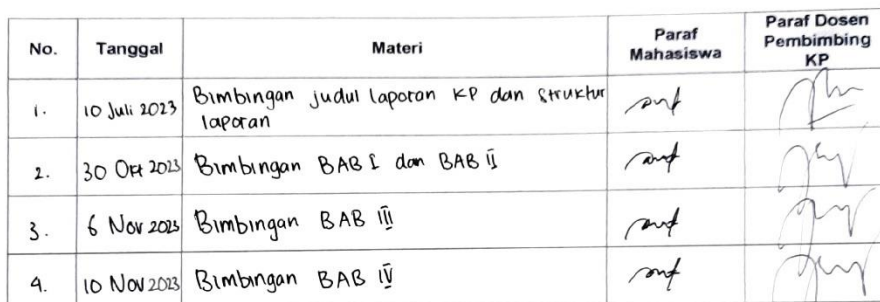 No. Tanggal Materi Paraf Mahasiswa Paraf Dosen Pembimbing KP
1. 10 Juli 2023 Bimbingan judul laporan KP dan struktur
laporan
2. 30 Okt 2023 Bimbingan BAB I dan BAB II
3. 6 Nov 2023 Bimbingan BAB III
4. 10 Nov 2023 Bimbingan BAB IV